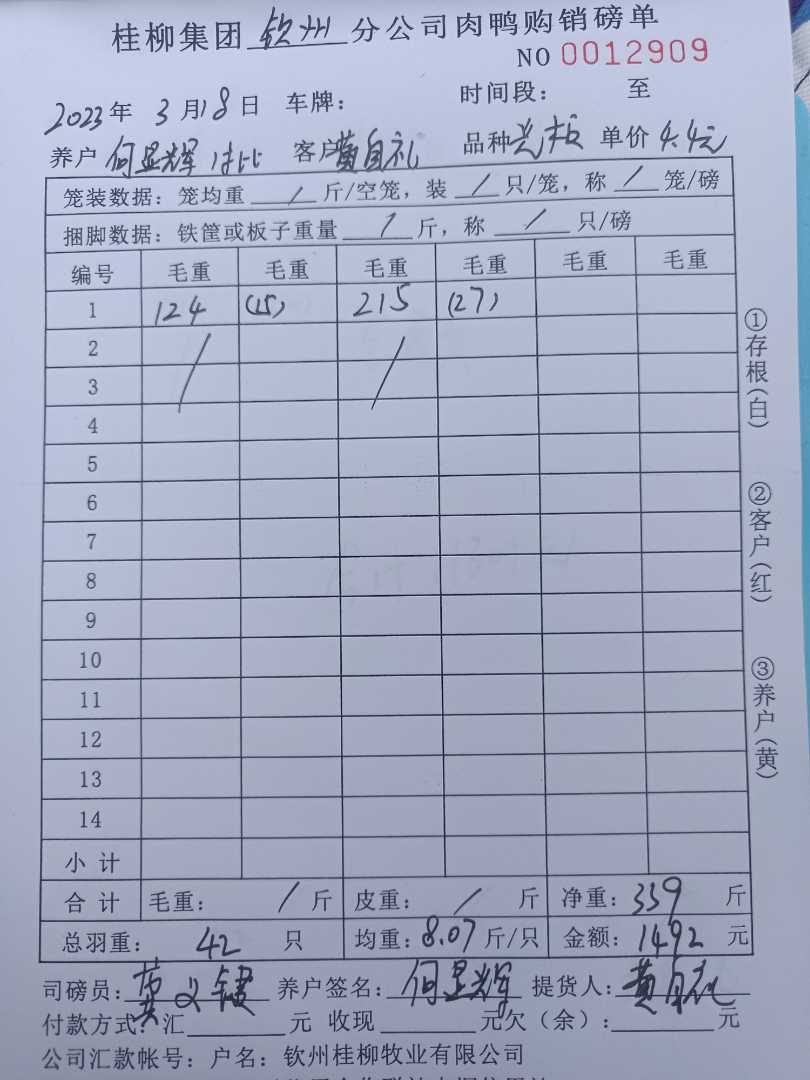 桂柳集团 钦州 分公司肉鸭购销磅单
NO 0012909
2023年 3月18日 车牌： 时间段： 至
养户 何显辉 客户 黄自礼 品种 单价 4.4元
笼装数据：笼均重 / 斤/空笼，装 / 只/笼，称 / 笼/磅
捆脚数据：铁筐或板子重量 / 斤，称 / 只/磅
编号 毛重 毛重 毛重 毛重 毛重 毛重
1 124 (15) 215 (27)
2
3
4
5
6
7
8
9
10
11
12
13
14
小计
合计 毛重： / 斤 皮重： / 斤 净重：339 斤
总羽重： 42 只 均重：8.07 斤/只 金额：1492 元
司磅员： 养户签名：何显辉 提货人：黄自礼
付款方式：汇 元 收现 元欠（余）： 元
公司汇款帐号：户名：钦州桂柳牧业有限公司
①存根(白)
②客户(红)
③养户(黄)